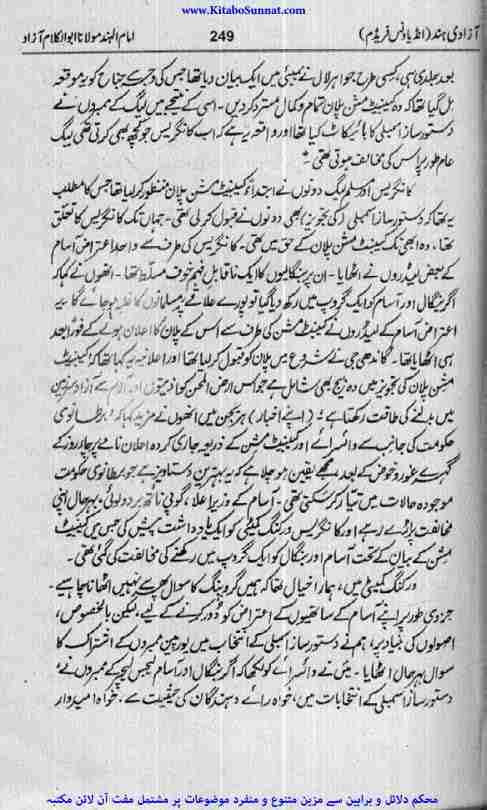 www.KitaboSunnat.com
آزادی ہند (انڈیا ونس فریڈم) 249 امام الہند مولانا ابوالکلام آزاد
بعد جلد ہی، کسی طرح جواہر لال نے بمبئی میں ایک بیان دیا تھا جس کی وجہ سے جناح کو یہ موقعہ
مل گیا تھا کہ وہ کیبینٹ مشن پلان تمام و کمال مسترد کر دیں۔ اسی کے نتیجے میں لیگ کے ممبروں نے
دستور ساز اسمبلی کا بائیکاٹ کیا تھا اور واقعہ یہ ہے کہ اب کانگریس جو کچھ بھی کرتی تھی لیگ
عام طور پر اس کی مخالف ہوتی تھی۔
کانگریس اور مسلم لیگ دونوں نے ابتداءً کیبینٹ مشن پلان منظور کر لیا تھا جس کا مطلب
یہ تھا کہ دستور ساز اسمبلی (کی تجویز) بھی دونوں نے قبول کر لی تھی۔ جہاں تک کانگریس کا تعلق
تھا، وہ ابھی تک کیبینٹ مشن پلان کے حق میں تھی۔ کانگریس کی طرف سے واحد اعتراض آسام
کے بعض لیڈروں نے اٹھایا۔ ان پر بنگالیوں کا ایک ناقابل فہم خوف مسلط تھا۔ انھوں نے کہا کہ
اگر بنگال اور آسام کو ایک گروپ میں رکھ دیا گیا تو پورے علاقے پر مسلمانوں کا غلبہ ہو جائے گا۔ یہ
اعتراض آسام کے لیڈروں نے کیبینٹ مشن کی طرف سے اس کے پلان کا اعلان ہونے کے فوراً بعد
ہی اٹھایا تھا۔ گاندھی جی نے شروع میں پلان کو قبول کر لیا تھا اور اعلانیہ یہ کہا تھا کہ کیبینٹ
مشن پلان کی تجویز میں وہ بیج بھی شامل ہے جو اس ارض المحن کو اذیتوں اور آلام سے آزاد سرزمین
میں بدلنے کی طاقت رکھتا ہے؛ (اپنے اخبار) ہریجن میں انھوں نے مزید کہا کہ: برطانوی
حکومت کی جانب سے وائسرائے اور کیبینٹ مشن کے ذریعہ جاری کردہ اعلان نامے پر چار روز کے
گہرے غور و خوض کے بعد، مجھے یقین ہو چلا ہے کہ یہ بہترین دستاویز ہے جو برطانوی حکومت
موجودہ حالات میں تیار کر سکتی تھی۔ آسام کے وزیر اعلا، گوپی ناتھ بردولوئی، بہرحال اپنی
مخالفت پر اڑے رہے اور کانگریس ورکنگ کمیٹی کو ایک یادداشت پیش کی جس میں کیبینٹ
مشن کے بیان کے تحت آسام اور بنگال کو ایک گروپ میں رکھنے کی مخالفت کی گئی تھی۔
ورکنگ کمیٹی میں، ہمارا خیال تھا کہ ہمیں گروپنگ کا سوال پھر سے نہیں اٹھانا چاہیے۔
جزوی طور پر اپنے آسام کے ساتھیوں کے اعتراض کو دور کرنے کے لیے، لیکن بالخصوص،
اصولوں کی بنیاد پر، ہم نے دستور ساز اسمبلی کے انتخاب میں یورپین ممبروں کے اشتراک کا
سوال بہرحال اٹھایا۔ میں نے وائسرائے کو لکھا کہ اگر بنگال اور آسام لیجس لیچر کے ممبروں نے
دستور ساز اسمبلی کے انتخابات میں، خواہ رائے دہندگان کی حیثیت سے، خواہ امیدوار
محکم دلائل و براہین سے مزین متنوع و منفرد موضوعات پر مشتمل مفت آن لائن مکتبہ